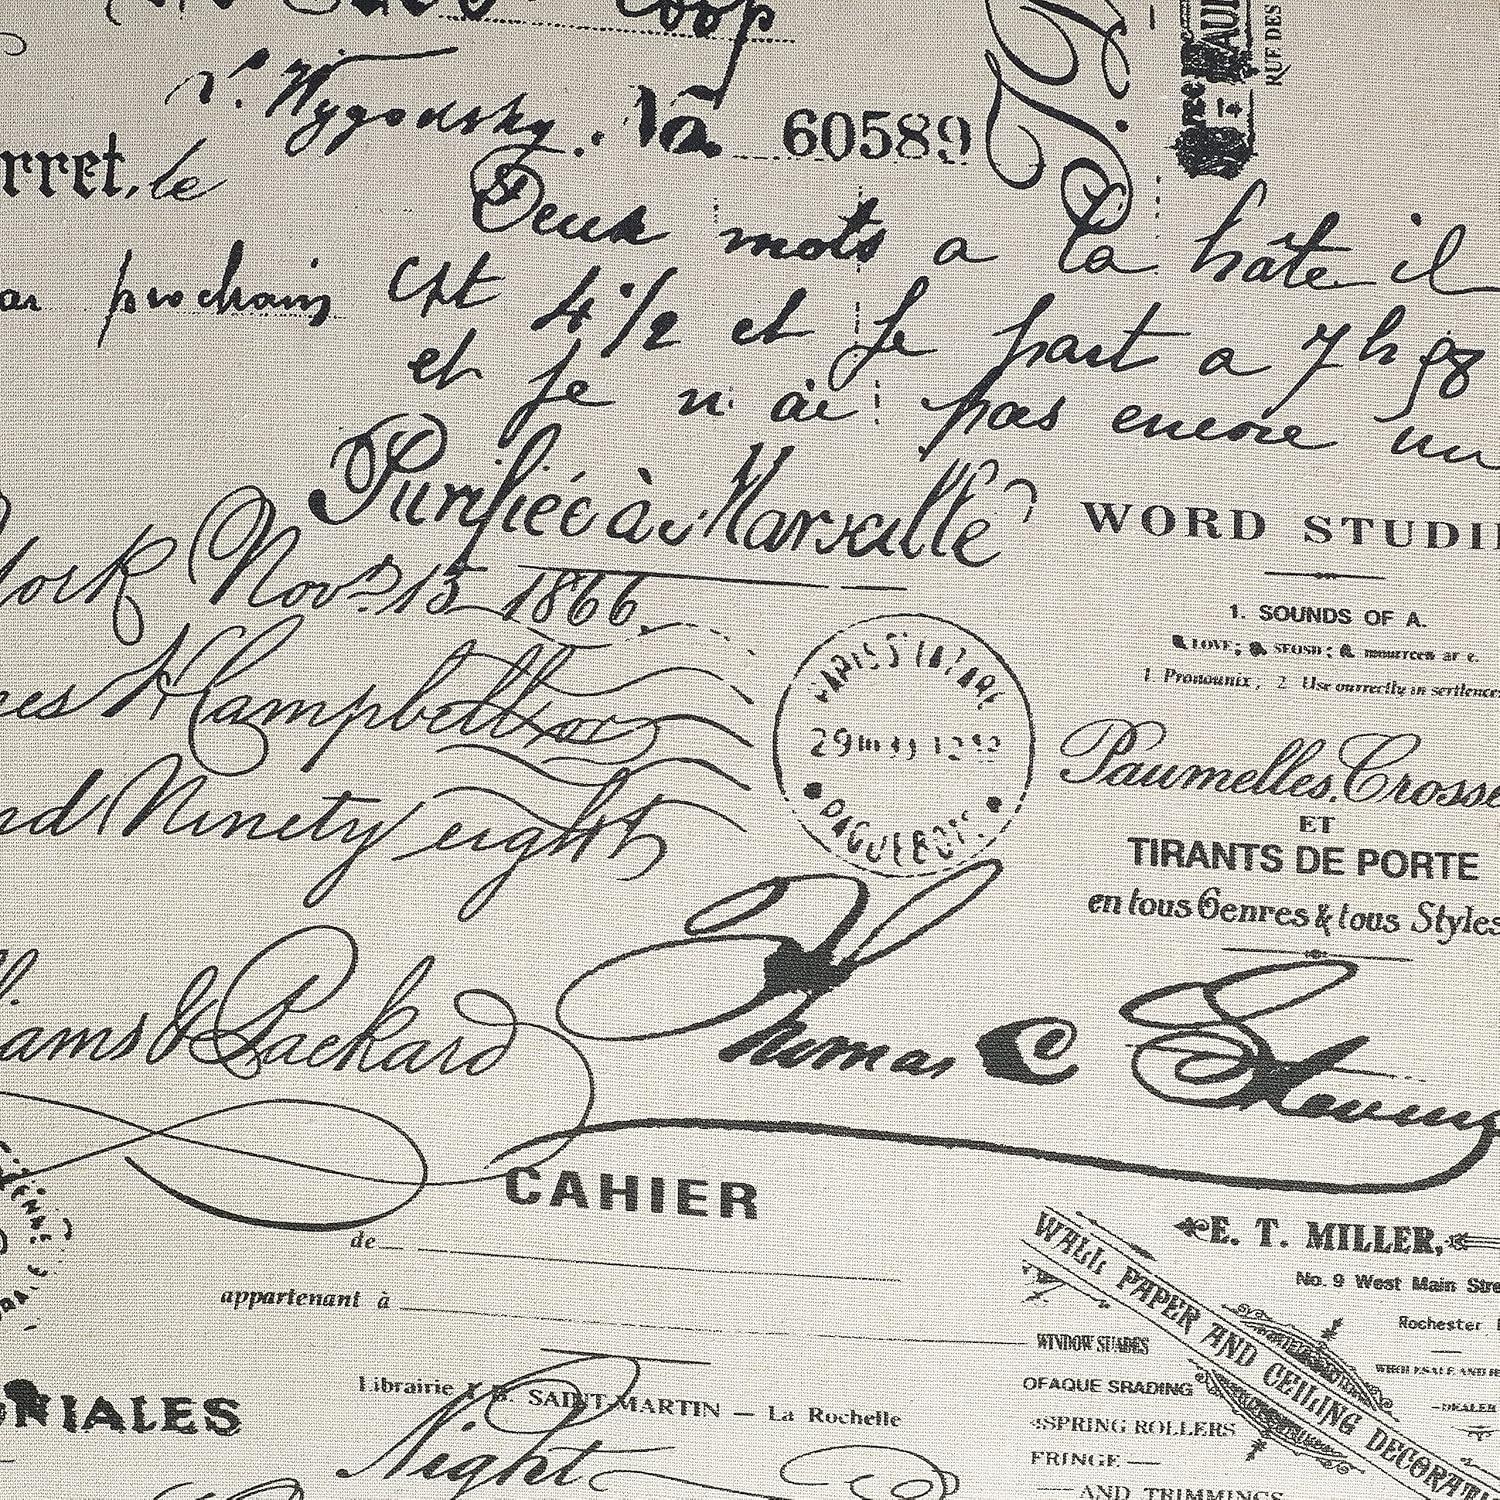 Coop
V. Wygodsky. Na 60589
RUE DES
rret, le
Deux mots a la hâte il
prochain est 4 1/2 et Je part a 7 h
et Je n ai pas encore un
Purifiée à Marseille
WORD STUDI
York Nov. 15 1866
1. SOUNDS OF A.
1. Pronounix, 2. Use ourrectly in sertlence
PARIS ST LAZARE
29
mes H Campbell
Paumelles, Crosse
ET
nd Ninety eight
TIRANTS DE PORTE
en tous Genres & tous Styles
iams & Packard
Thomas C Stevens
CAHIER
de
appartenant à
E. T. MILLER,
No. 9 West Main Stre
Rochester
WALL PAPER AND CEILING DECORATI
WINDOW SUADES
OFAQUE SRADING
SPRING ROLLERS
FRINGE
AND TRIMMINGS
DEALER
Librairie J. B. SAINT-MARTIN — La Rochelle
NIALES
Night